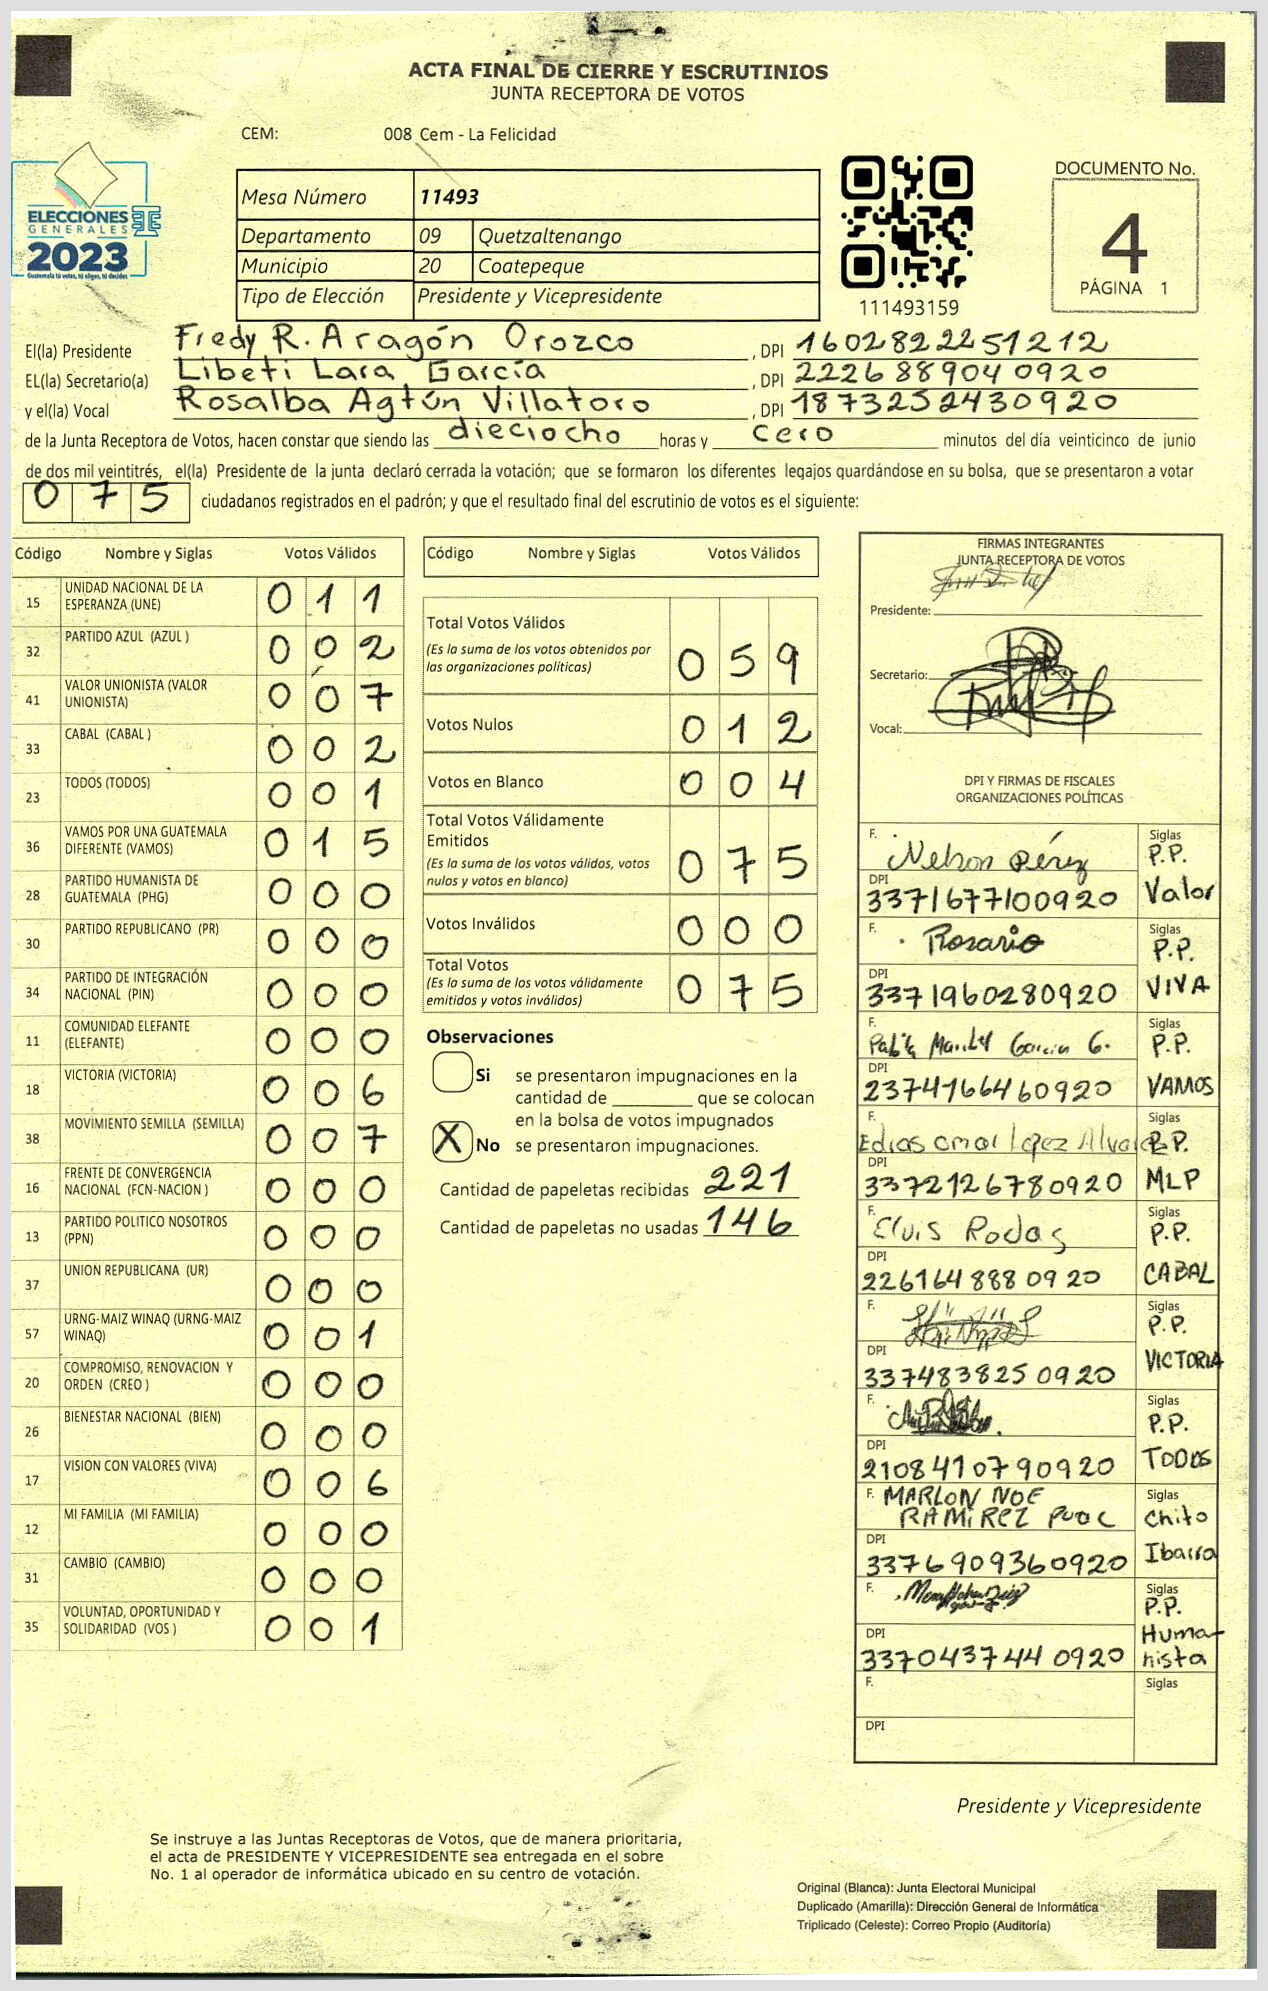 ACTA FINAL DE CIERRE Y ESCRUTINIOS
JUNTA RECEPTORA DE VOTOS
CEM: 008 Cem - La Felicidad
ELECCIONES
GENERALES
2023
Guatemala tú votas, tú eliges, tú decides
Mesa Número 11493
Departamento 09 Quetzaltenango
Municipio 20 Coatepeque
Tipo de Elección Presidente y Vicepresidente
111493159
DOCUMENTO No.
4
PÁGINA 1
El(la) Presidente Fredy R. Aragón Orozco , DPI 1602822251212
EL(la) Secretario(a) Libeti Lara García , DPI 2226889040920
y el(la) Vocal Rosalba Agtún Villatoro , DPI 1873252430920
de la Junta Receptora de Votos, hacen constar que siendo las dieciocho horas y cero minutos del día veinticinco de junio
de dos mil veintitrés, el(la) Presidente de la junta declaró cerrada la votación; que se formaron los diferentes legajos guardándose en su bolsa, que se presentaron a votar
0 7 5 ciudadanos registrados en el padrón; y que el resultado final del escrutinio de votos es el siguiente:
Código Nombre y Siglas Votos Válidos
15 UNIDAD NACIONAL DE LA ESPERANZA (UNE) 0 1 1
32 PARTIDO AZUL (AZUL ) 0 0 2
41 VALOR UNIONISTA (VALOR UNIONISTA) 0 0 7
33 CABAL (CABAL ) 0 0 2
23 TODOS (TODOS) 0 0 1
36 VAMOS POR UNA GUATEMALA DIFERENTE (VAMOS) 0 1 5
28 PARTIDO HUMANISTA DE GUATEMALA (PHG) 0 0 0
30 PARTIDO REPUBLICANO (PR) 0 0 0
34 PARTIDO DE INTEGRACIÓN NACIONAL (PIN) 0 0 0
11 COMUNIDAD ELEFANTE (ELEFANTE) 0 0 0
18 VICTORIA (VICTORIA) 0 0 6
38 MOVIMIENTO SEMILLA (SEMILLA) 0 0 7
16 FRENTE DE CONVERGENCIA NACIONAL (FCN-NACION ) 0 0 0
13 PARTIDO POLITICO NOSOTROS (PPN) 0 0 0
37 UNION REPUBLICANA (UR) 0 0 0
57 URNG-MAIZ WINAQ (URNG-MAIZ WINAQ) 0 0 1
20 COMPROMISO, RENOVACION Y ORDEN (CREO ) 0 0 0
26 BIENESTAR NACIONAL (BIEN) 0 0 0
17 VISION CON VALORES (VIVA) 0 0 6
12 MI FAMILIA (MI FAMILIA) 0 0 0
31 CAMBIO (CAMBIO) 0 0 0
35 VOLUNTAD, OPORTUNIDAD Y SOLIDARIDAD (VOS ) 0 0 1
Código Nombre y Siglas Votos Válidos
Total Votos Válidos
(Es la suma de los votos obtenidos por
las organizaciones políticas) 0 5 9
Votos Nulos 0 1 2
Votos en Blanco 0 0 4
Total Votos Válidamente
Emitidos
(Es la suma de los votos válidos, votos
nulos y votos en blanco) 0 7 5
Votos Inválidos 0 0 0
Total Votos
(Es la suma de los votos válidamente
emitidos y votos inválidos) 0 7 5
Observaciones
Si se presentaron impugnaciones en la
cantidad de que se colocan
en la bolsa de votos impugnados
X No se presentaron impugnaciones.
Cantidad de papeletas recibidas 221
Cantidad de papeletas no usadas 146
FIRMAS INTEGRANTES
JUNTA RECEPTORA DE VOTOS
Presidente:
Secretario:
Vocal:
DPI Y FIRMAS DE FISCALES
ORGANIZACIONES POLÍTICAS
F. Nelson Pérez Siglas P.P.
DPI 3371677100920 Valor
F. Rosario Siglas P.P.
DPI 3371960280920 VIVA
F. Garcia G. Siglas P.P.
DPI 2374166460920 VAMOS
F. Edias Omar Lopez Alvarez P.P.
DPI 3372126780920 MLP
F. Elvis Rodas Siglas P.P.
DPI 2261648880920 CABAL
F. Siglas P.P.
DPI 3374838250920 VICTORIA
F. Siglas P.P.
DPI 2108410790920 TODOS
F. MARLON NOE Siglas
RAMIREZ PUAC Chito
DPI 3376909360920 Ibarra
F. Siglas P.P.
DPI 3370437440920 Huma-
nista
F. Siglas
DPI
Presidente y Vicepresidente
Se instruye a las Juntas Receptoras de Votos, que de manera prioritaria,
el acta de PRESIDENTE Y VICEPRESIDENTE sea entregada en el sobre
No. 1 al operador de informática ubicado en su centro de votación.
Original (Blanca): Junta Electoral Municipal
Duplicado (Amarilla): Dirección General de Informática
Triplicado (Celeste): Correo Propio (Auditoría)